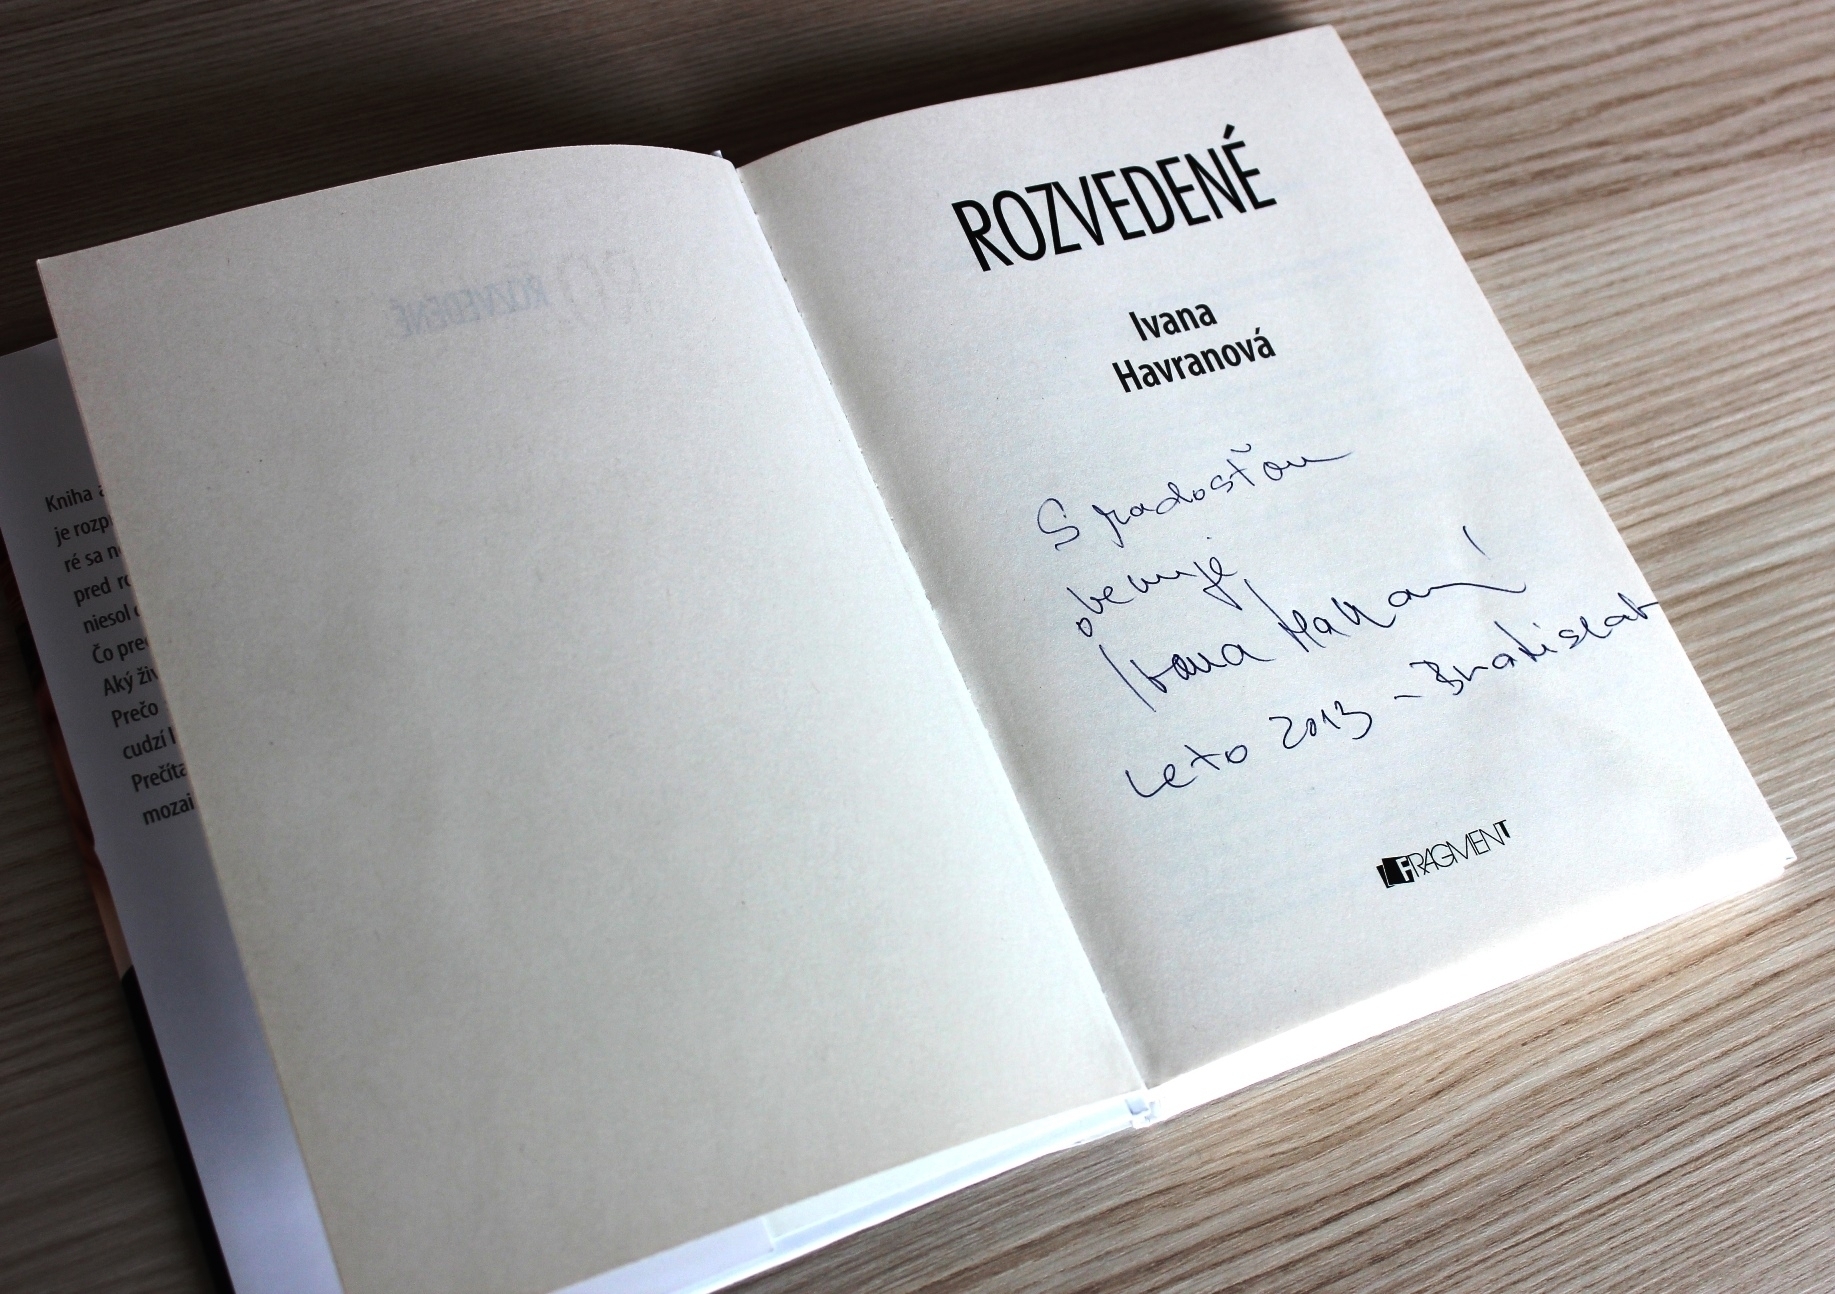 Kniha
je rozp
ré sa n
pred ro
niesol
Čo pre
Aký živ
Prečo
cudzí
Prečíta
mozai
ROZVEDENÉ
ROZVEDENÉ
Ivana
Havranová
S radosťou
venuje
Ivana
Leto 2013 - Bratislava
FRAGMENT